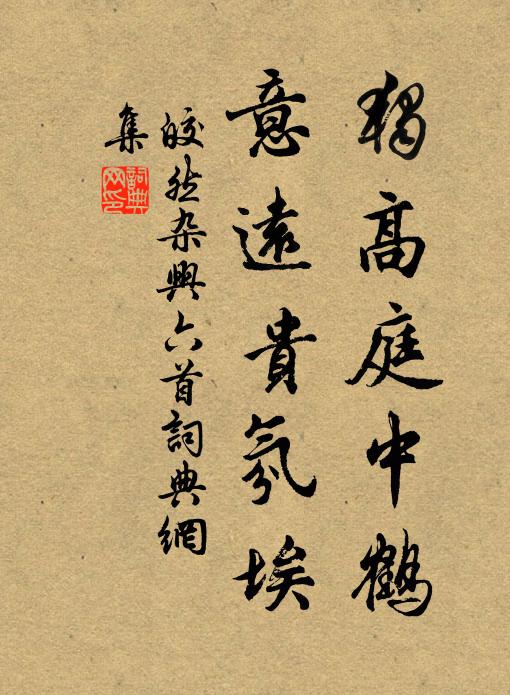 獨高庭中鶴
意遠貴氛埃
皎然杂興六首詞典網
集
詞典
网印